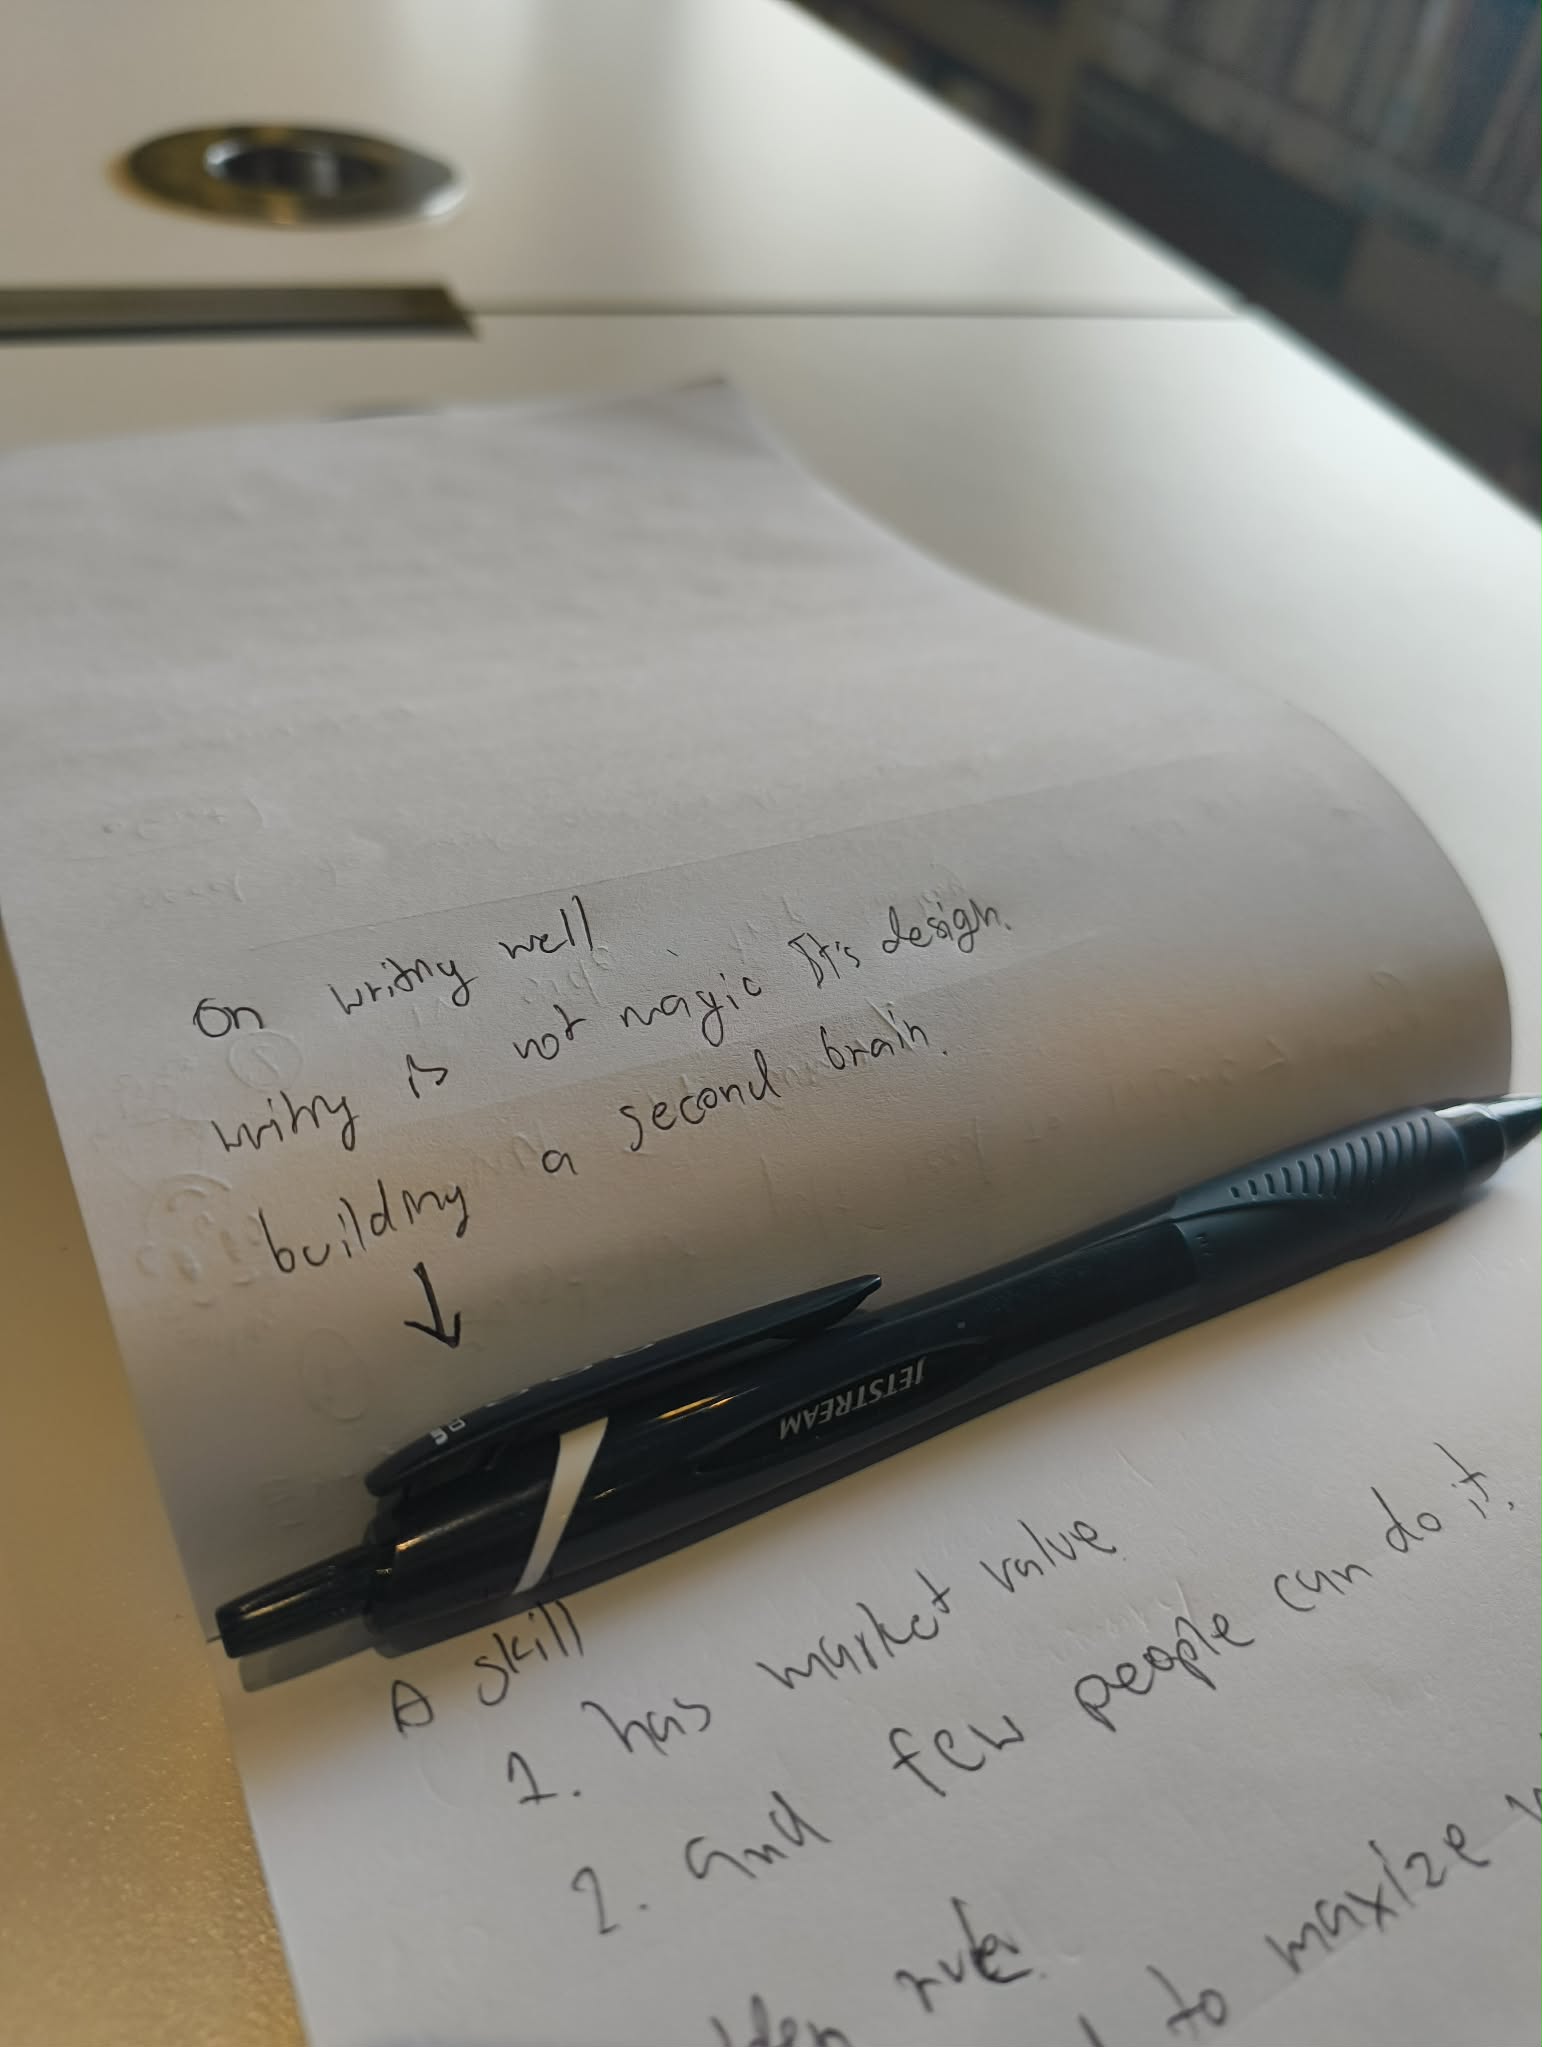 On writing well
writing is not magic It's design.
building a second brain.
JETSTREAM
A skill
1. has market value
2. and few people can do it.
rule
to maxize